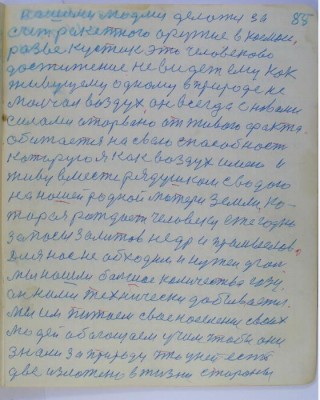 85
вашими людми делаюя за
счет ракетного оружие в космос,
разве кустик это человеково
достижение не видет ему как
живущему одному в природе не
молчал воздух, он всегда с новыми
силами оторвано от живого факта
обижается на свою способность
которую я как воздух имею и
живу вместе рядушком с водою
на нашей родной матери земли, ко-
торая рождает человеку ежегодно
за мосы залитов недр и промыслов,
для нас необходим и нужен угол
мы нашли большие количества газу,
он нами технически добивается.
мы им питаем свое население своих
людей обогощаем учим чтобы они
знали за природу что у ней есть
две изложено в жизни стороны